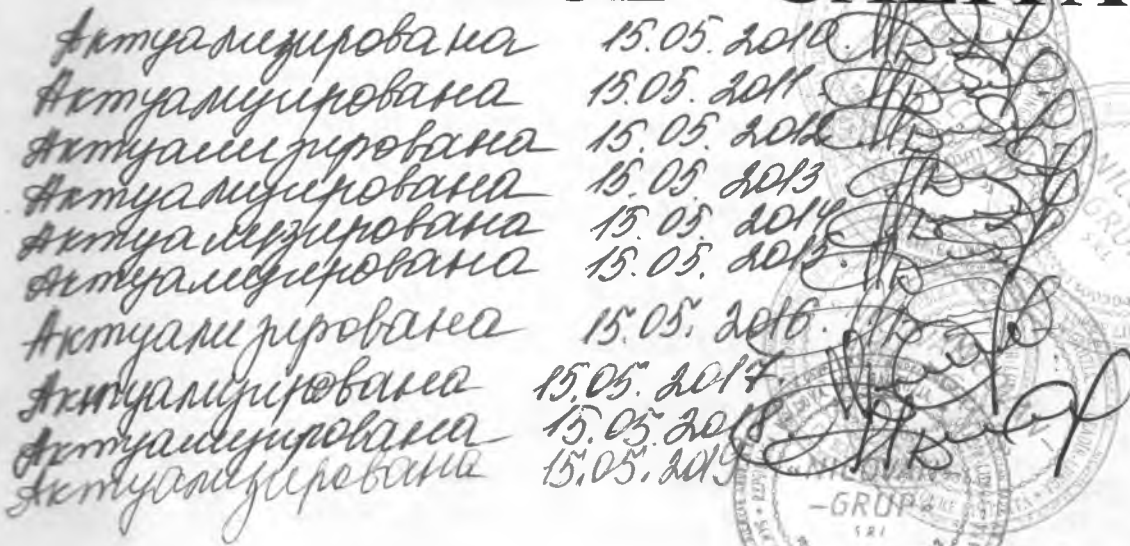 Актуализирована 15.05.2010
Актуализирована 15.05.2011
Актуализирована 15.05.2012
Актуализирована 15.05.2013
Актуализирована 15.05.2014
Актуализирована 15.05.2015
Актуализирована 15.05.2016.
Актуализирована 15.05.2017.
Актуализирована 15.05.2018
Актуализирована 15.05.2019
-GRUP
S.R.L.